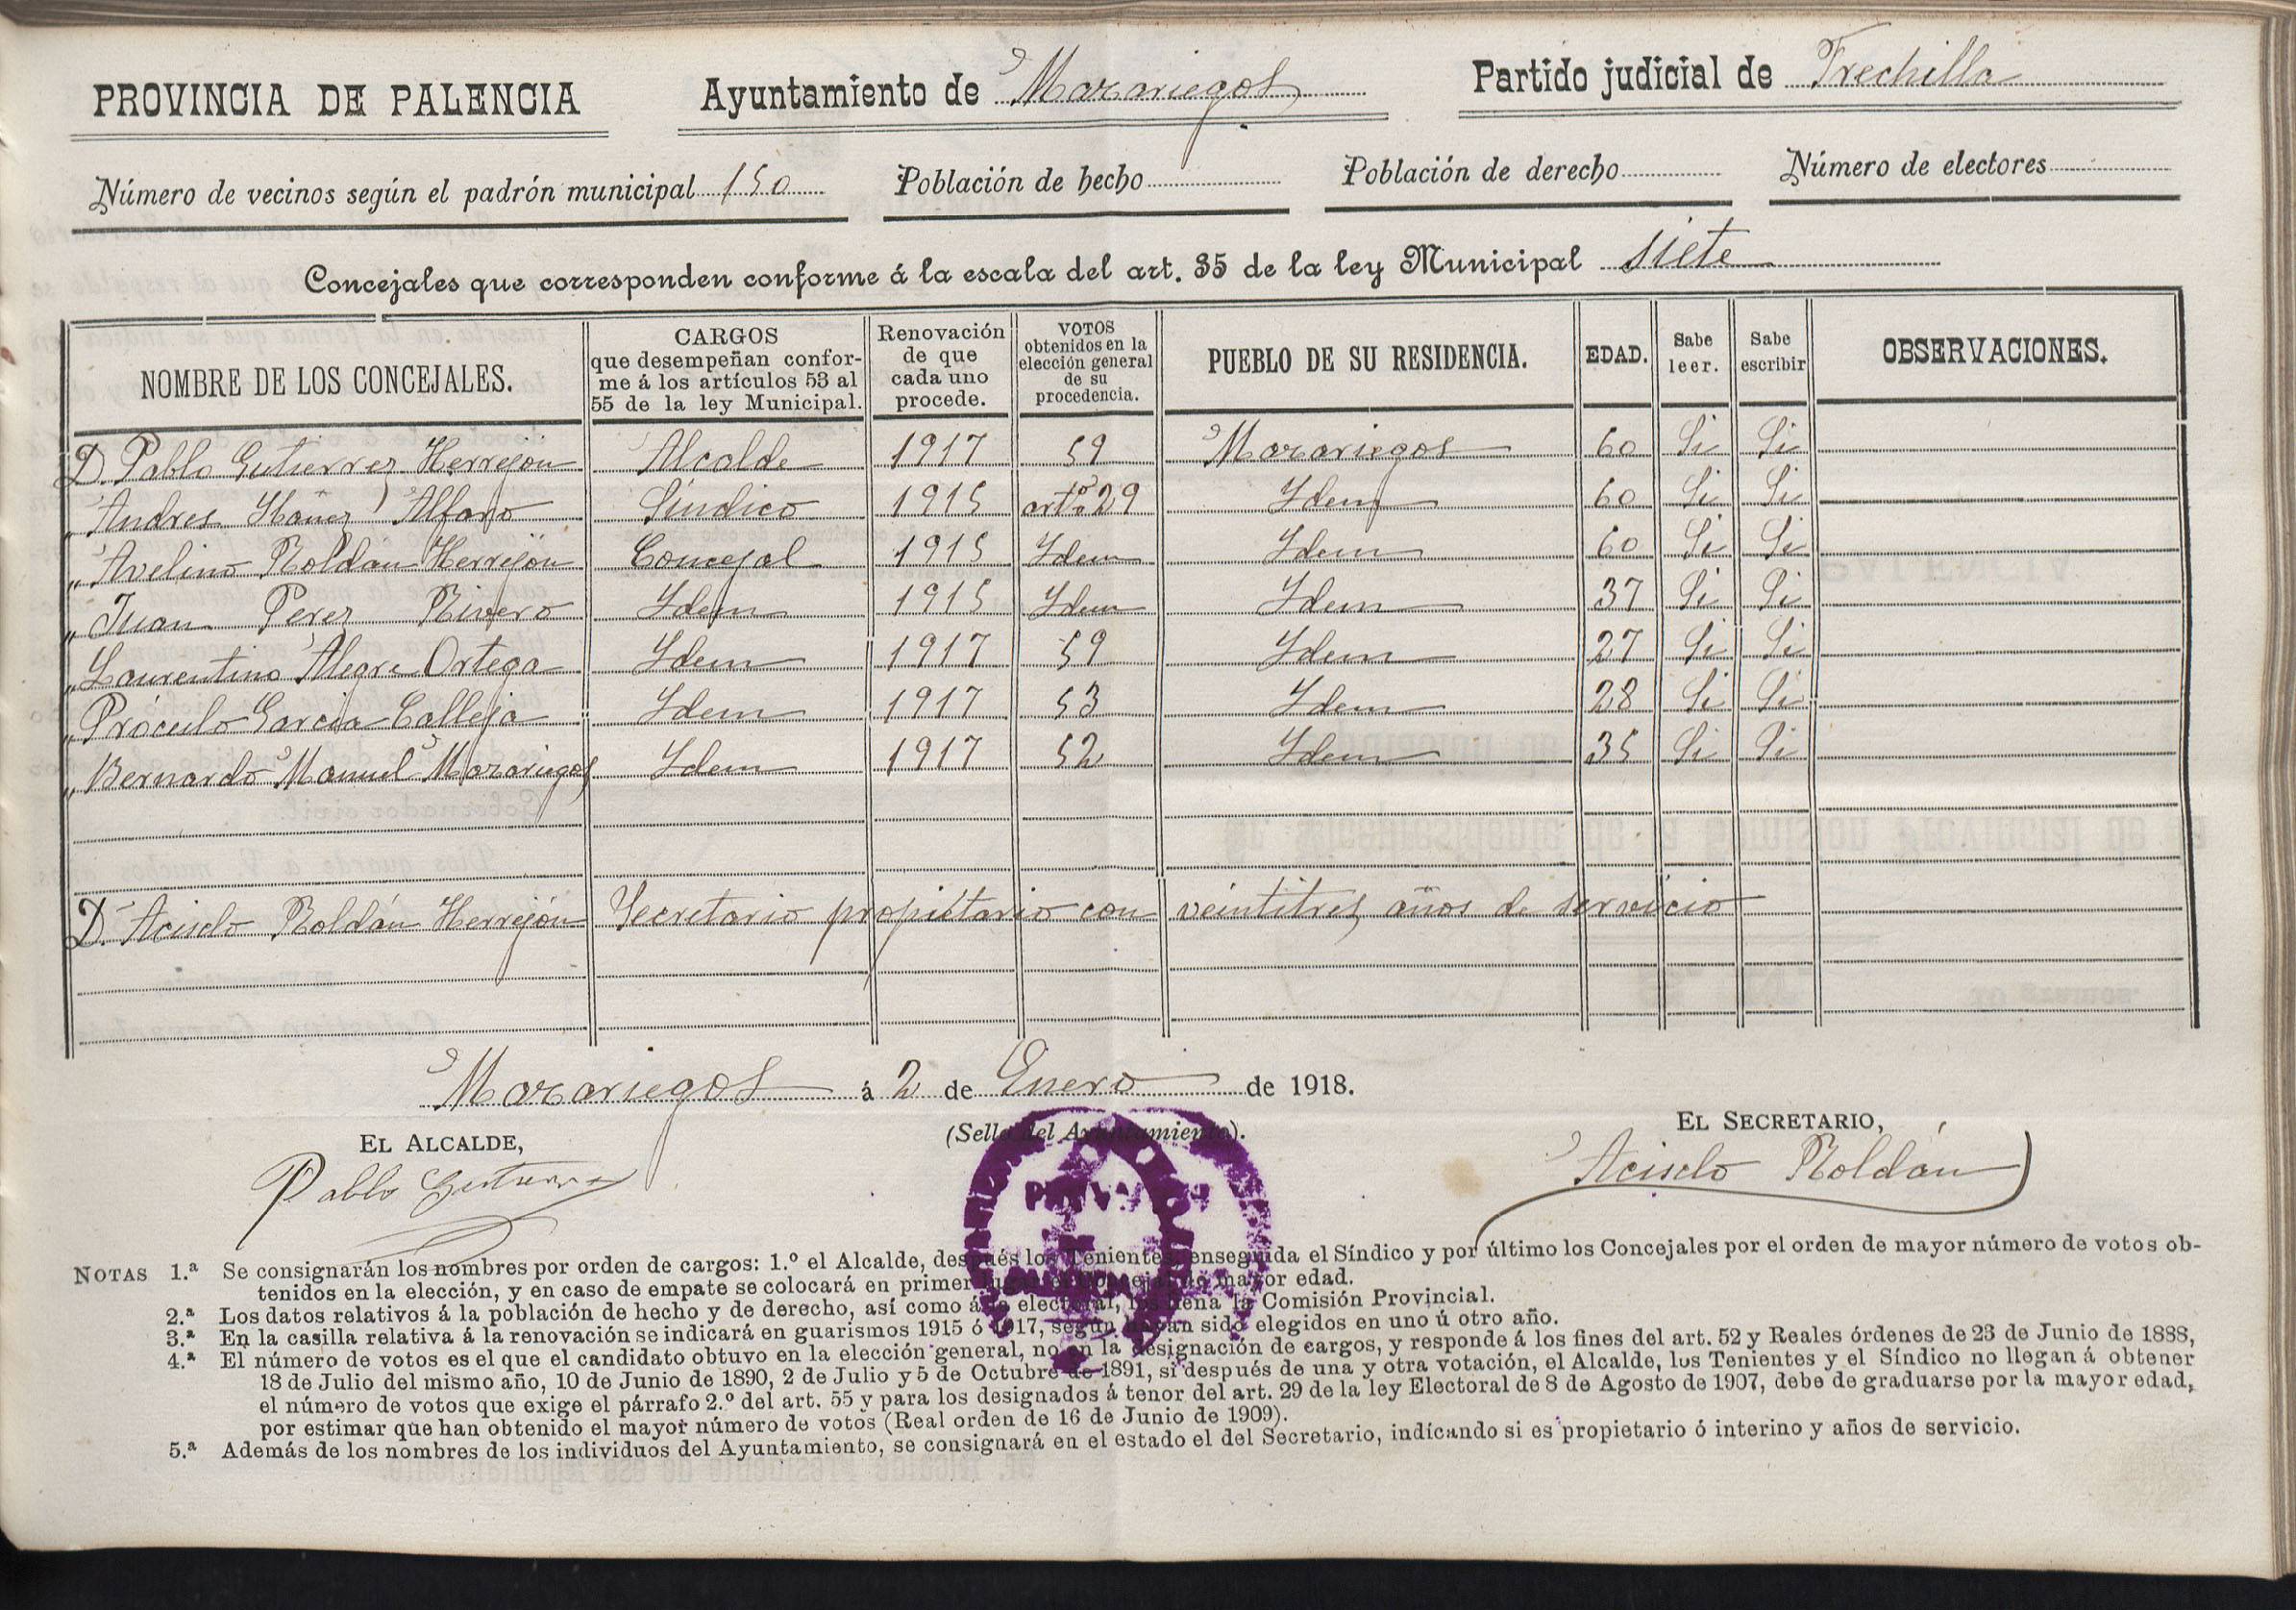 PROVINCIA DE PALENCIA Ayuntamiento de Mazariegos Partido judicial de Frechilla
Número de vecinos según el padrón municipal 150 Población de hecho Población de derecho Número de electores
Concejales que corresponden conforme á la escala del art. 35 de la ley Municipal siete
NOMBRE DE LOS CONCEJALES. CARGOS que desempeñan conforme á los artículos 53 al 55 de la ley Municipal. Renovación de que cada uno procede. VOTOS obtenidos en la elección general de su procedencia. PUEBLO DE SU RESIDENCIA. EDAD. Sabe leer. Sabe escribir OBSERVACIONES.
D. Pablo Gutierrez Herrejon Alcalde 1917 59 Mazariegos 60 Si Si
" Andres Ibáñez Alfaro Síndico 1915 artº 29 Idem 60 Si Si
" Avelino Roldán Herrejón Concejal 1915 Idem Idem 60 Si Si
" Juan Perez Rivero Idem 1915 Idem Idem 37 Si Si
" Laurentino Alegre Ortega Idem 1917 59 Idem 27 Si Si
" Próculo Garcia Calleja Idem 1917 53 Idem 28 Si Si
" Bernardo Manuel Mazariegos Idem 1917 52 Idem 35 Si Si
D. Acisclo Roldán Herrejón Secretario propietario con veintitres años de servicio
Mazariegos á 2 de Enero de 1918.
EL ALCALDE, (Sello del Ayuntamiento). EL SECRETARIO,
Pablo Gutierrez Acisclo Roldán
NOTAS 1.ª Se consignarán los nombres por orden de cargos: 1.º el Alcalde, después los Tenientes, enseguida el Síndico y por último los Concejales por el orden de mayor número de votos ob-
tenidos en la elección, y en caso de empate se colocará en primer lugar el Concejal de mayor edad.
2.ª Los datos relativos á la población de hecho y de derecho, así como á la electoral, los llena la Comisión Provincial.
3.ª En la casilla relativa á la renovación se indicará en guarismos 1915 ó 1917, según hayan sido elegidos en uno ú otro año.
4.ª El número de votos es el que el candidato obtuvo en la elección general, no en la designación de cargos, y responde á los fines del art. 52 y Reales órdenes de 23 de Junio de 1888,
18 de Julio del mismo año, 10 de Junio de 1890, 2 de Julio y 5 de Octubre de 1891, si después de una y otra votación, el Alcalde, los Tenientes y el Síndico no llegan á obtener
el número de votos que exige el párrafo 2.º del art. 55 y para los designados á tenor del art. 29 de la ley Electoral de 8 de Agosto de 1907, debe de graduarse por la mayor edad,
por estimar que han obtenido el mayor número de votos (Real orden de 16 de Junio de 1909).
5.ª Además de los nombres de los individuos del Ayuntamiento, se consignará en el estado el del Secretario, indicando si es propietario ó interino y años de servicio.